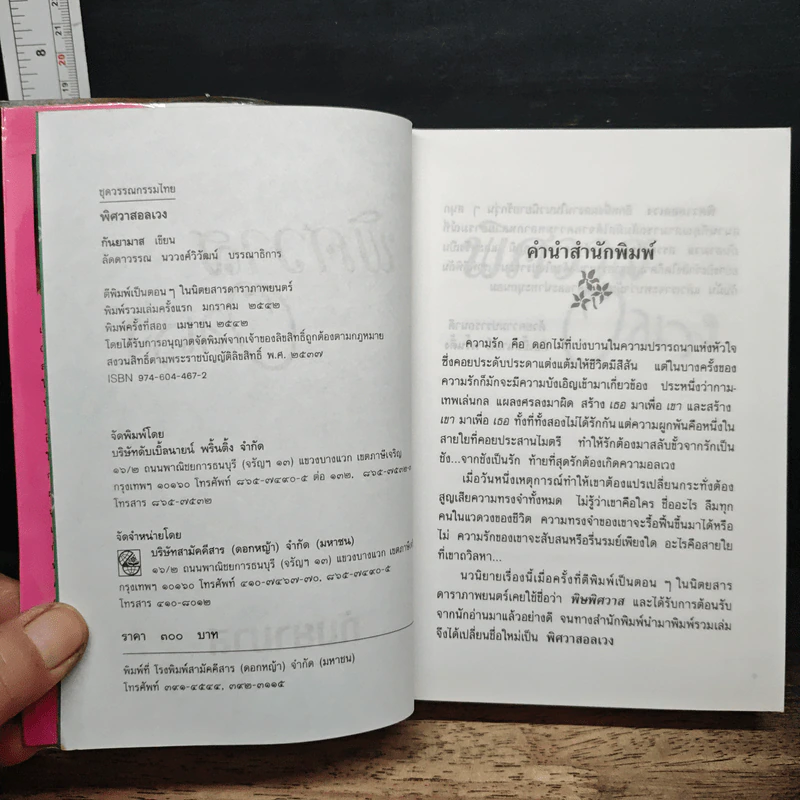 ชุดวรรณกรรมไทย
พิศวาสอลเวง
กันยามาส เขียน
ลัดดาวรรณ นววงศ์วิวัฒน์ บรรณาธิการ
ตีพิมพ์เป็นตอน ๆ ในนิตยสารดาราภาพยนตร์
พิมพ์รวมเล่มครั้งแรก มกราคม ๒๕๔๒
พิมพ์ครั้งที่สอง เมษายน ๒๕๔๒
โดยได้รับการอนุญาตจัดพิมพ์จากเจ้าของลิขสิทธิ์ถูกต้องตามกฎหมาย
สงวนลิขสิทธิ์ตามพระราชบัญญัติลิขสิทธิ์ พ.ศ. ๒๕๓๗
ISBN 974-604-467-2
จัดพิมพ์โดย
บริษัทดับเบิ้ลนายน์ พริ้นติ้ง จำกัด
๑๖/๒ ถนนพาณิชยการธนบุรี (จรัญฯ ๑๓) แขวงบางแวก เขตภาษีเจริญ
กรุงเทพฯ ๑๐๑๖๐ โทรศัพท์ ๘๖๕-๗๔๙๐-๕ ต่อ ๑๓๒, ๘๖๕-๗๕๓๑
โทรสาร ๘๖๕-๗๕๓๒
จัดจำหน่ายโดย
บริษัทสามัคคีสาร (ดอกหญ้า) จำกัด (มหาชน)
๑๖/๒ ถนนพาณิชยการธนบุรี (จรัญฯ ๑๓) แขวงบางแวก เขตภาษี
กรุงเทพฯ ๑๐๑๖๐ โทรศัพท์ ๔๑๐-๗๔๖๗-๗๐, ๘๖๕-๗๔๙๐-๕
โทรสาร ๔๑๐-๘๐๑๒
ราคา ๓๐๐ บาท
พิมพ์ที่ โรงพิมพ์สามัคคีสาร (ดอกหญ้า) จำกัด (มหาชน)
โทรศัพท์ ๓๙๑-๔๕๔๔, ๓๙๒-๓๑๑๕
คำนำสำนักพิมพ์
ความรัก คือ ดอกไม้ที่เบ่งบานในความปรารถนาแห่งหัวใจ
ซึ่งคอยประดับประดาแต่งแต้มให้ชีวิตมีสีสัน แต่ในบางครั้งของ
ความรักก็มักจะมีความบังเอิญเข้ามาเกี่ยวข้อง ประหนึ่งว่ากาม-
เทพเล่นกล แผลงศรลงมาผิด สร้าง เธอ มาเพื่อ เขา และสร้าง
เขา มาเพื่อ เธอ ทั้งที่ทั้งสองไม่ได้รักกัน แต่ความผูกพันคือหนึ่งใน
สายใยที่คอยประสานไมตรี ทำให้รักต้องมาสลับขั้วจากรักเป็น
ชัง...จากชังเป็นรัก ท้ายที่สุดรักต้องเกิดความอลเวง
เมื่อวันหนึ่งเหตุการณ์ทำให้เขาต้องแปรเปลี่ยนกระทั่งต้อง
สูญเสียความทรงจำทั้งหมด ไม่รู้ว่าเขาคือใคร ชื่ออะไร ลืมทุก
คนในแวดวงของชีวิต ความทรงจำของเขาจะรื้อฟื้นขึ้นมาได้หรือ
ไม่ ความรักของเขาจะสับสนหรือรื่นรมย์เพียงใด อะไรคือสายใย
ที่เขาถวิลหา...
นวนิยายเรื่องนี้เมื่อครั้งที่ตีพิมพ์เป็นตอน ๆ ในนิตยสาร
ดาราภาพยนตร์เคยใช้ชื่อว่า พิษพิศวาส และได้รับการต้อนรับ
จากนักอ่านมาแล้วอย่างดี จนทางสำนักพิมพ์นำมาพิมพ์รวมเล่ม
จึงได้เปลี่ยนชื่อใหม่เป็น พิศวาสอลเวง
8
22
21
20
19